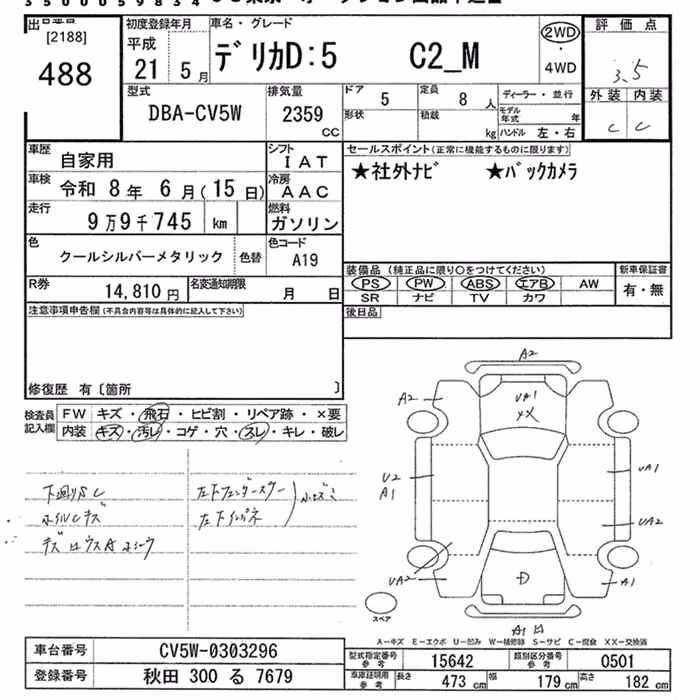 3500059834
[2188]
488
初度登録年月
平成
21 5月
車名・グレード
デリカD:5 C2_M
2WD
4WD
評価点
3.5
外装 内装
C C
型式
DBA-CV5W
排気量
2359
CC
ドア
5
定員
8人
形状
積載
kg
ディーラー・並行
モデル年式
年
ハンドル 左・右
車歴
自家用
シフト
IAT
車検
令和 8年 6月(15日)
冷房
AAC
走行
9万9千745 km
燃料
ガソリン
色
クールシルバーメタリック
色替
色コード
A19
R券
14,810円
名変通知期限
月 日
セールスポイント(正常に機能するものに限ります)
★社外ナビ ★バックカメラ
装備品(純正品に限り○をつけてください)
PS PW ABS エアB AW
SR ナビ TV カワ
新車保証書
有・無
後日品
注意事項申告欄(不具合内容等は具体的に記入して下さい)
修復歴 有〔箇所 〕
検査員記入欄
FW キズ・飛石・ヒビ割・リペア跡・×要
内装 キズ・汚レ・コゲ・穴・スレ・キレ・破レ
下廻りSC
ホイルCキズ
左下フェンダースター
左下インパネ
A2
A2
UA1
U2
A1
UA1
UA2
UA2
A1
D
A1
スペア
A－キズ E－エクボ U－凹み W－補修跡 S－サビ C－腐食 XX－交換済
車台番号
CV5W-0303296
登録番号
秋田 300 る 7679
型式指定番号
参考
15642
類別区分番号
参考
0501
車庫証明用
参考
長さ
473 cm
幅
179 cm
高さ
182 cm